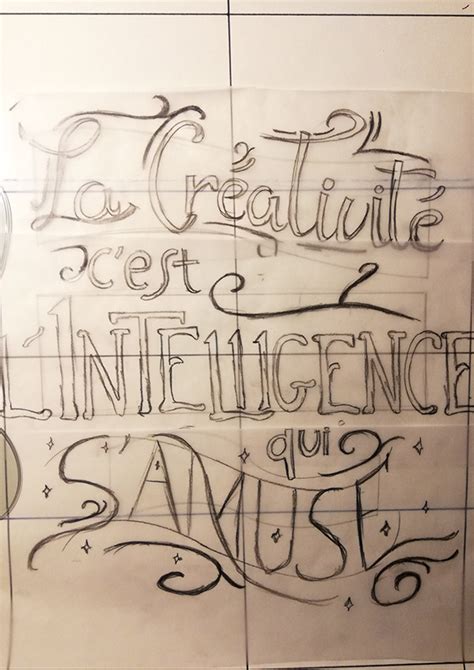 La Créativité
c'est
L'INTELLIGENCE
qui
S'AMUSE